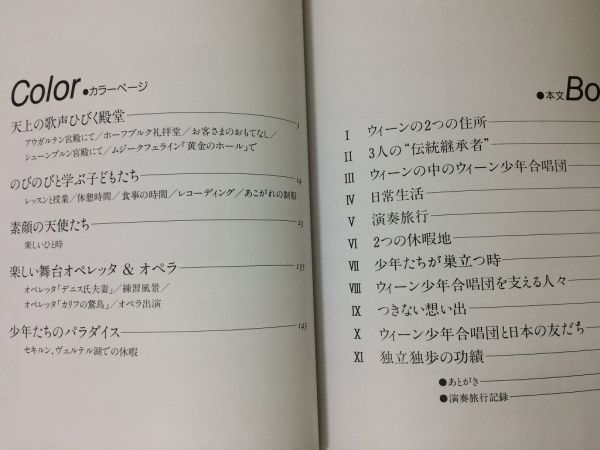 Color ●カラーページ
天上の歌声ひびく殿堂 1
アウガルテン宮殿にて／ホーフブルク礼拝堂／お客さまのおもてなし／
シェーンブルン宮殿にて／ムジークフェライン「黄金のホール」で
のびのびと学ぶ子どもたち
レッスンと授業／休憩時間／食事の時間／レコーディング／あこがれの制服
素顔の天使たち
楽しいひと時
楽しい舞台オペレッタ & オペラ
オペレッタ「デニス氏夫妻」／練習風景／
オペレッタ「カリフの鷲鳥」／オペラ出演
少年たちのパラダイス
セキルン、ヴェルテル湖での休暇
●本文 Bo
I ウィーンの2つの住所
II 3人の“伝統継承者”
III ウィーンの中のウィーン少年合唱団
IV 日常生活
V 演奏旅行
VI 2つの休暇地
VII 少年たちが巣立つ時
VIII ウィーン少年合唱団を支える人々
IX つきない想い出
X ウィーン少年合唱団と日本の友だち
XI 独立独歩の功績
●あとがき
●演奏旅行記録